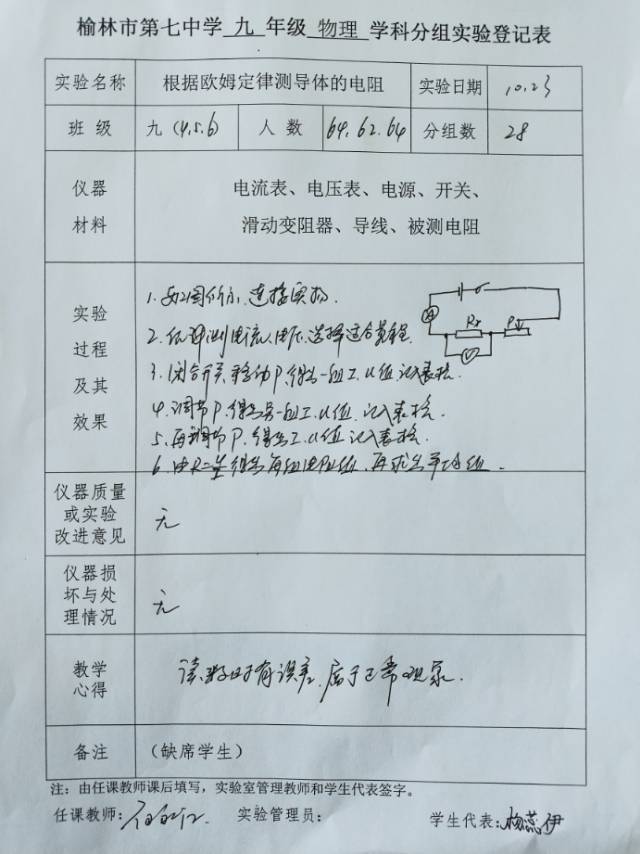 榆林市第七中学 九 年级 物理 学科分组实验登记表
实验名称 根据欧姆定律测导体的电阻 实验日期 10.23
班 级 九（4.5.6） 人 数 64.62.64 分组数 28
仪器
材料
电流表、电压表、电源、开关、
滑动变阻器、导线、被测电阻
实验
过程
及其
效果
1. 如图所示,连接实物.
A
Rx
P
V
2. 估测电流、电压,选择适合量程.
3. 闭合开关,移动P.得出一组I.U值,记入表格.
4. 调节P.得出另一组I.U值,记入表格.
5. 再调节P.得出I.U值,记入表格.
6. 由R=U/I得出每组电阻值,再求出平均值.
仪器质量
或实验
改进意见
无
仪器损
坏与处
理情况
无
教学
心得
读数时有误差,属于正常现象.
备注 （缺席学生）
注：由任课教师课后填写，实验室管理教师和学生代表签字。
任课教师: 实验管理员: 学生代表:杨蕊伊